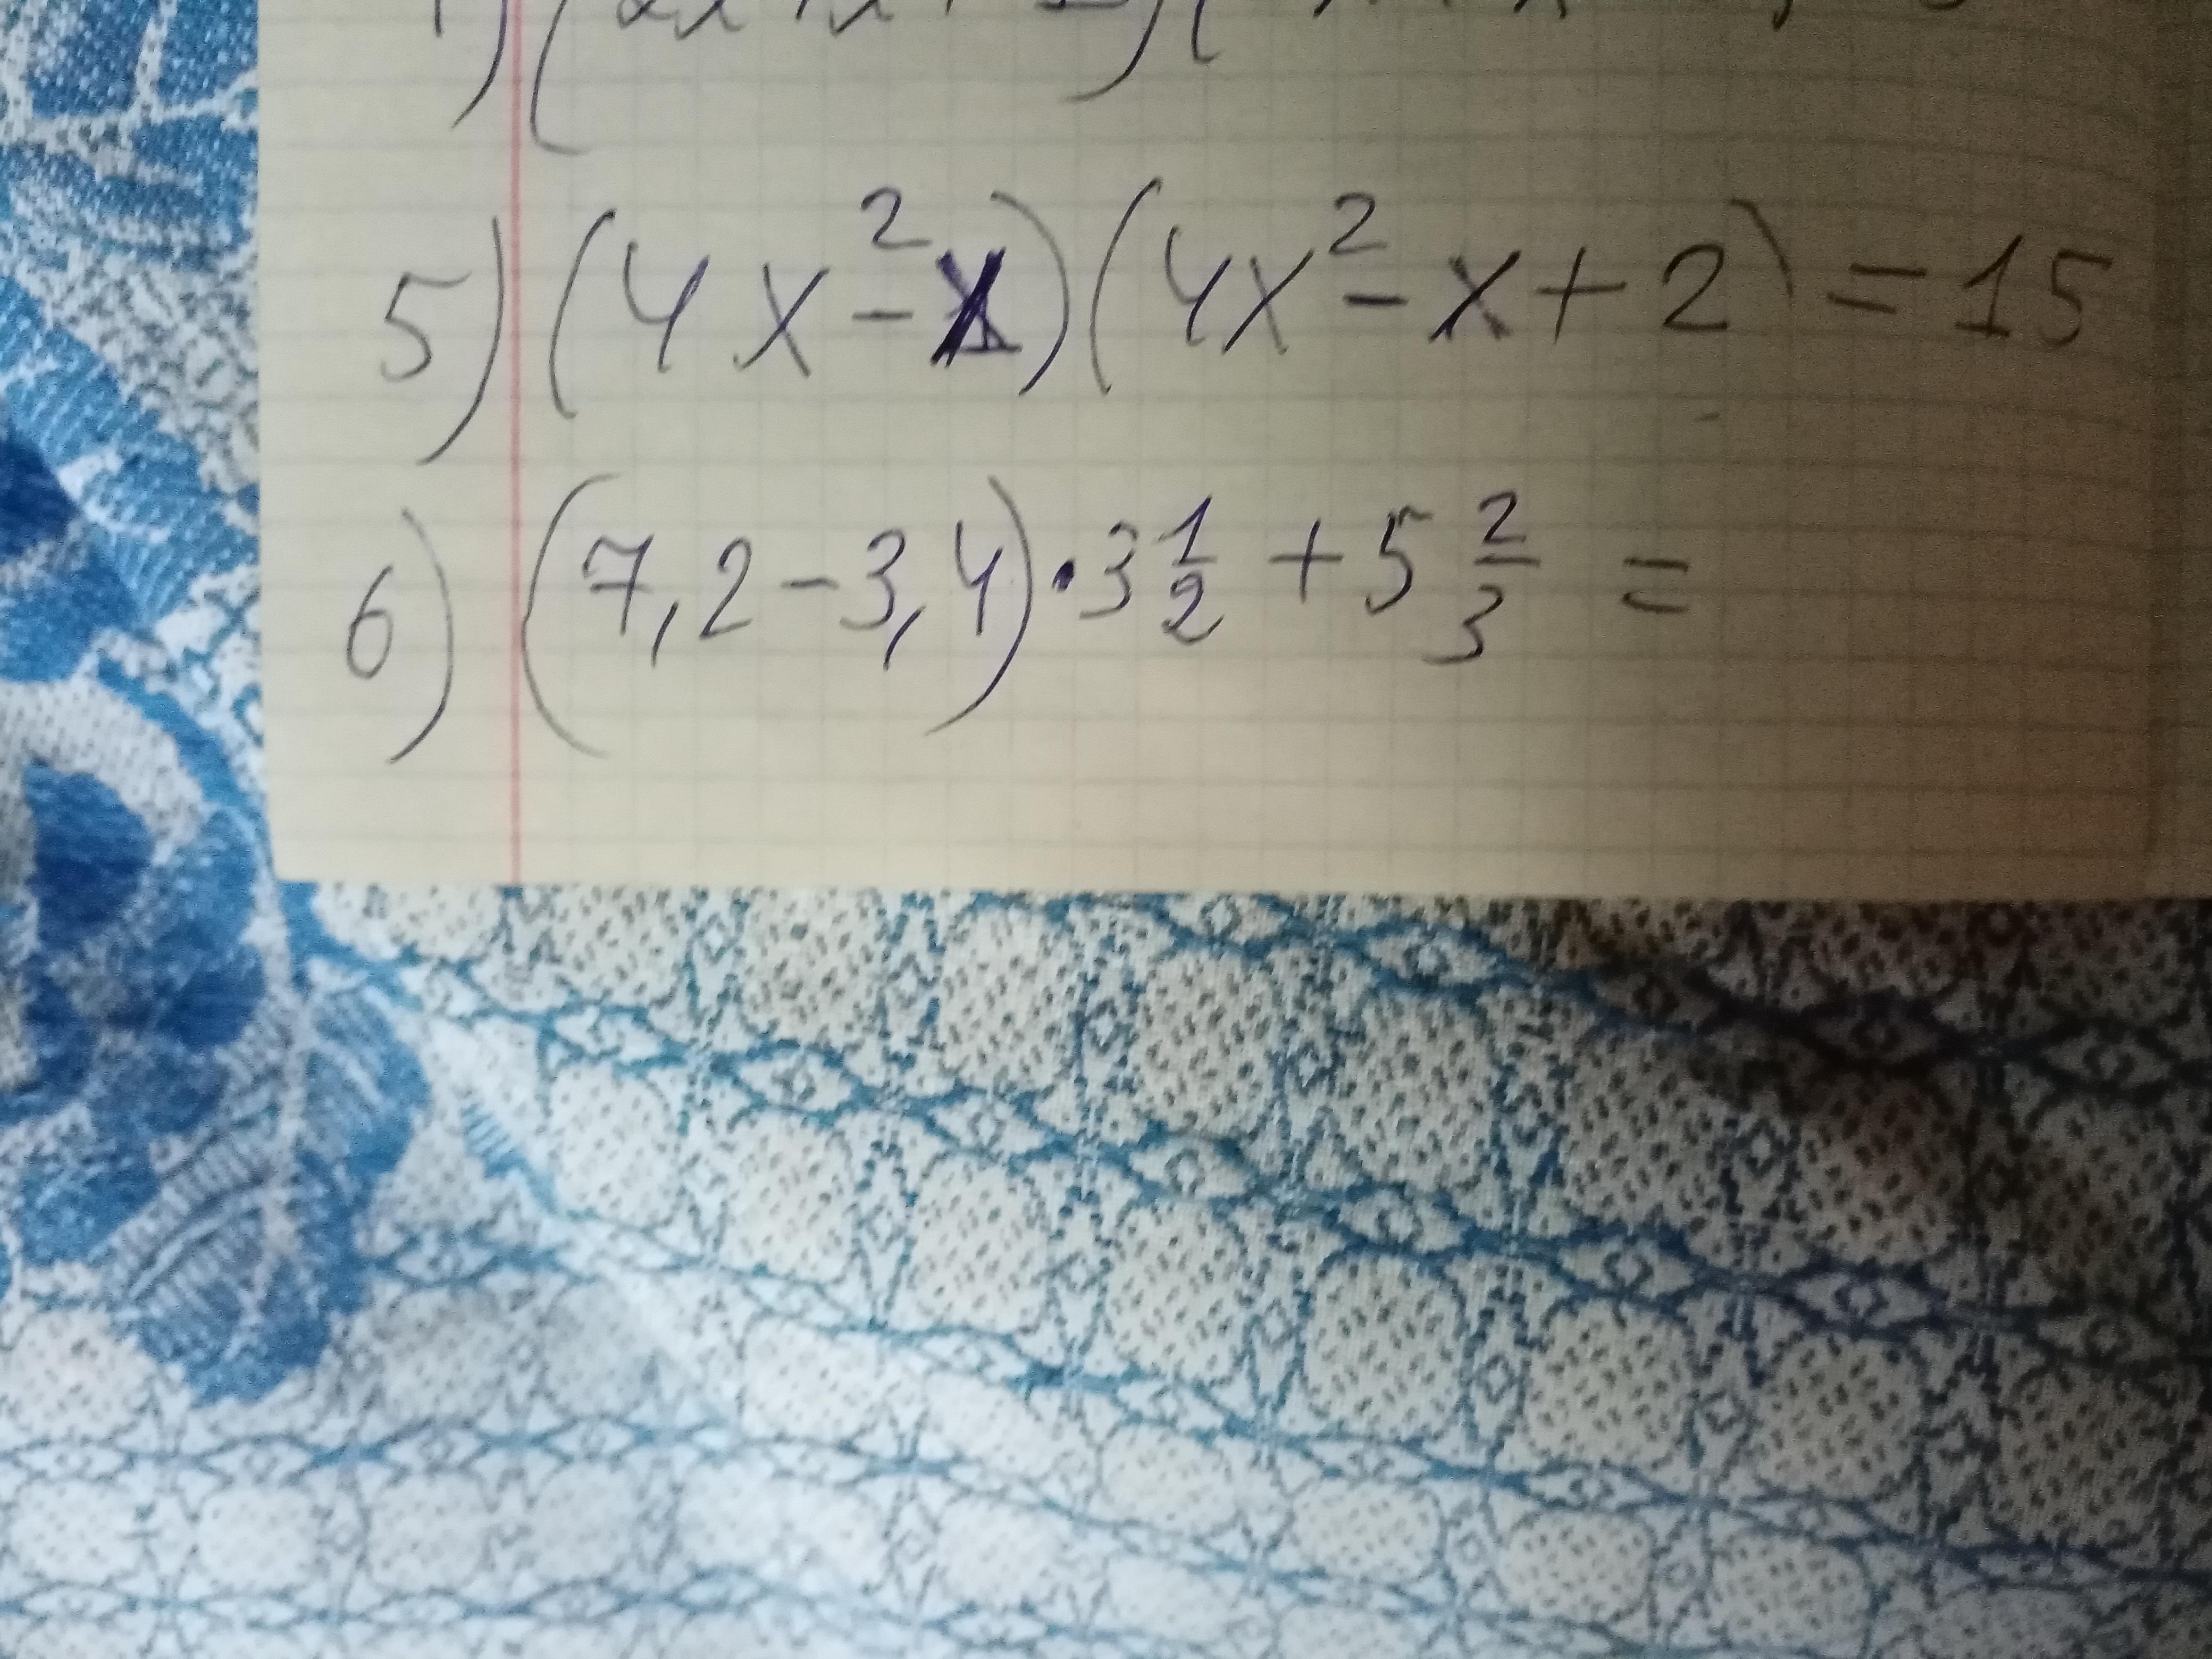 5) (4x² - x)(4x² - x + 2) = 15
6) (7,2 - 3,4) · 3 1/2 + 5 2/3 =